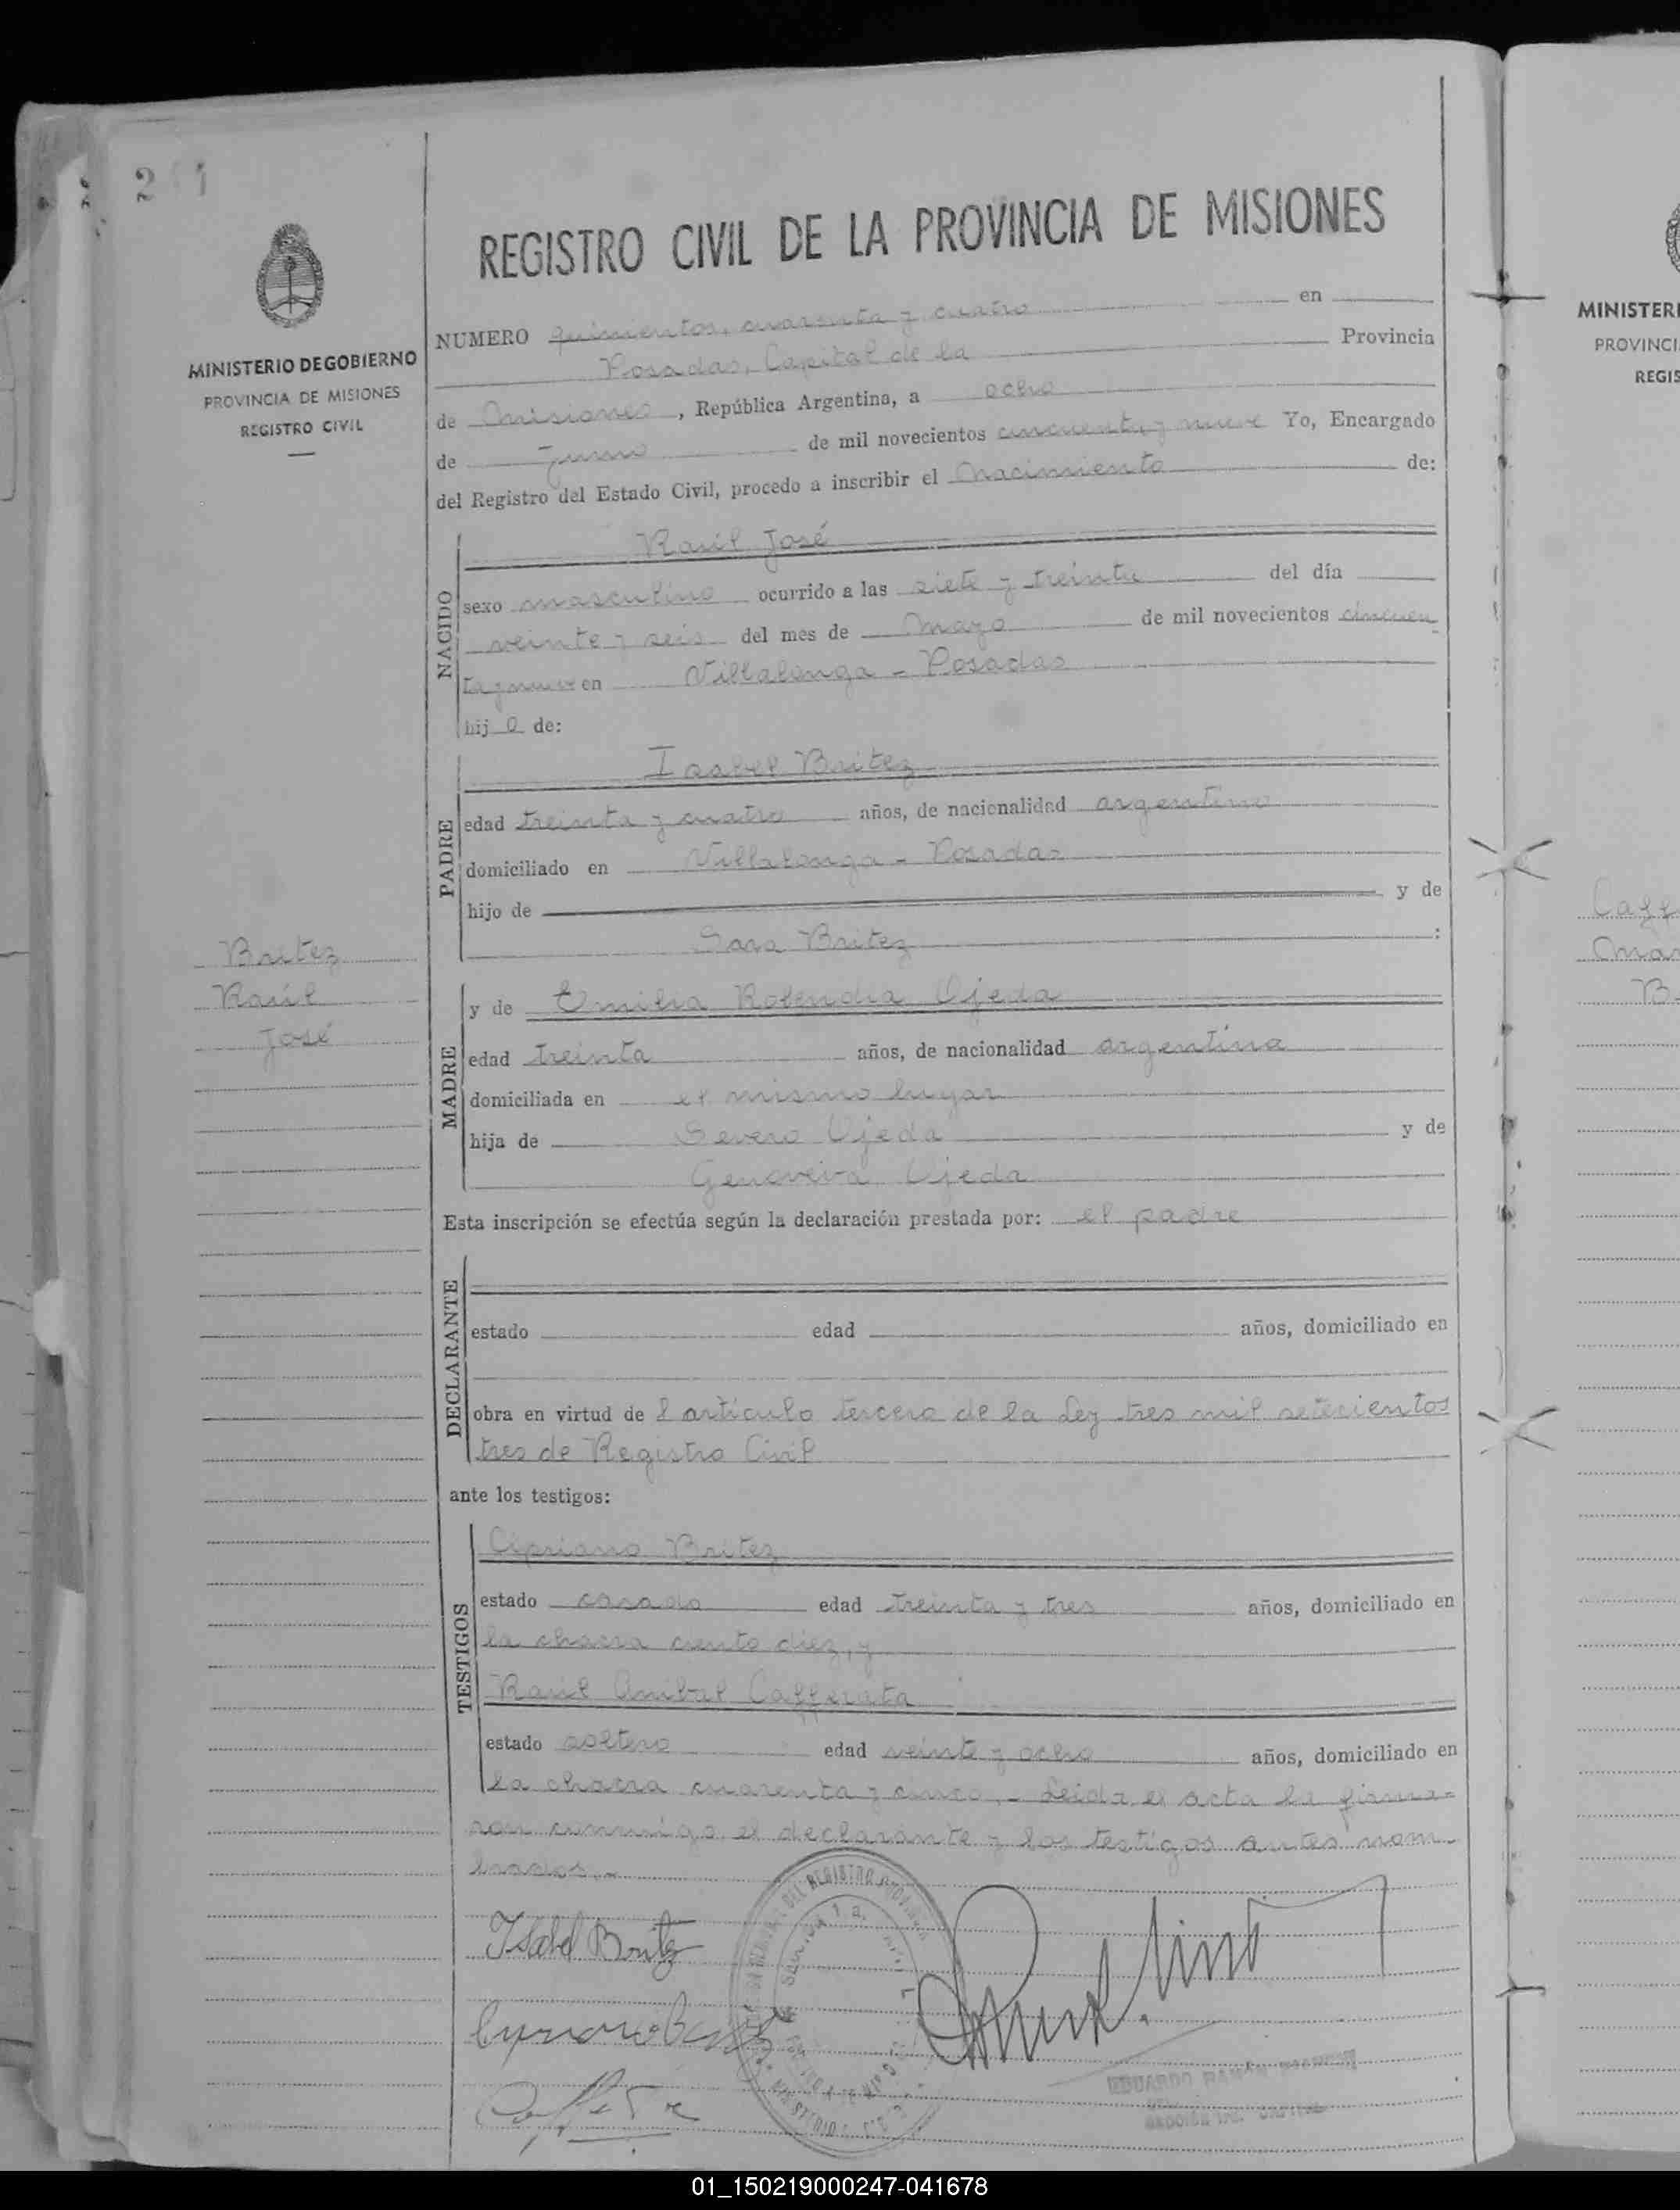 REGISTRO CIVIL DE LA PROVINCIA DE MISIONES
MINISTERIO DE GOBIERNO
PROVINCIA DE MISIONES
REGISTRO CIVIL
NUMERO quinientos, cuarenta y cuatro en
Posadas, Capital de la Provincia
de Misiones, República Argentina, a ocho
de Junio de mil novecientos cincuenta y nueve Yo, Encargado
del Registro del Estado Civil, procedo a inscribir el Nacimiento de:
NACIDO
Raúl José
sexo masculino ocurrido a las siete y treinta del día
veinte y seis del mes de Mayo de mil novecientos cincuen
ta y nueve en Villalonga - Posadas
hijo de:
PADRE
Isabel Britez
edad treinta y cuatro años, de nacionalidad argentino
domiciliado en Villalonga - Posadas
hijo de y de
Sara Britez :
Britez
Raúl
José
MADRE
y de Emilia Rosendra Ojeda
edad treinta años, de nacionalidad argentina
domiciliada en el mismo lugar
hija de Severo Ojeda y de
Genoveva Ojeda
Esta inscripción se efectúa según la declaración prestada por: el padre
DECLARANTE
estado edad años, domiciliado en
obra en virtud de l artículo tercero de la Ley tres mil setecientos
tres de Registro Civil
ante los testigos:
TESTIGOS
Cipriano Britez
estado casado edad treinta y tres años, domiciliado en
la chacra ciento diez, y
Raúl Anibal Cafferata
estado soltero edad veinte y ocho años, domiciliado en
la chacra cuarenta y cinco, - Leida el acta la firma-
ron conmigo el declarante y los testigos antes nom-
brados. -
Isabel Britez
EDUARDO RAMÓN
MINISTERI
PROVINCI
REGIS
Caff
Omar
B
01_150219000247-041678